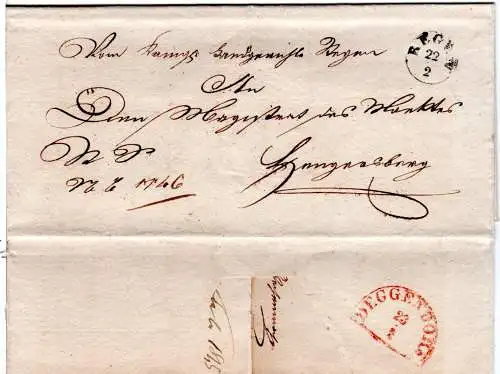 Vom Königl Landgerichte Regen
REGEN
22
2
An
Den Magistrat des Marktes
N E 1746
Hengersberg
DEGGENDORF
23
2